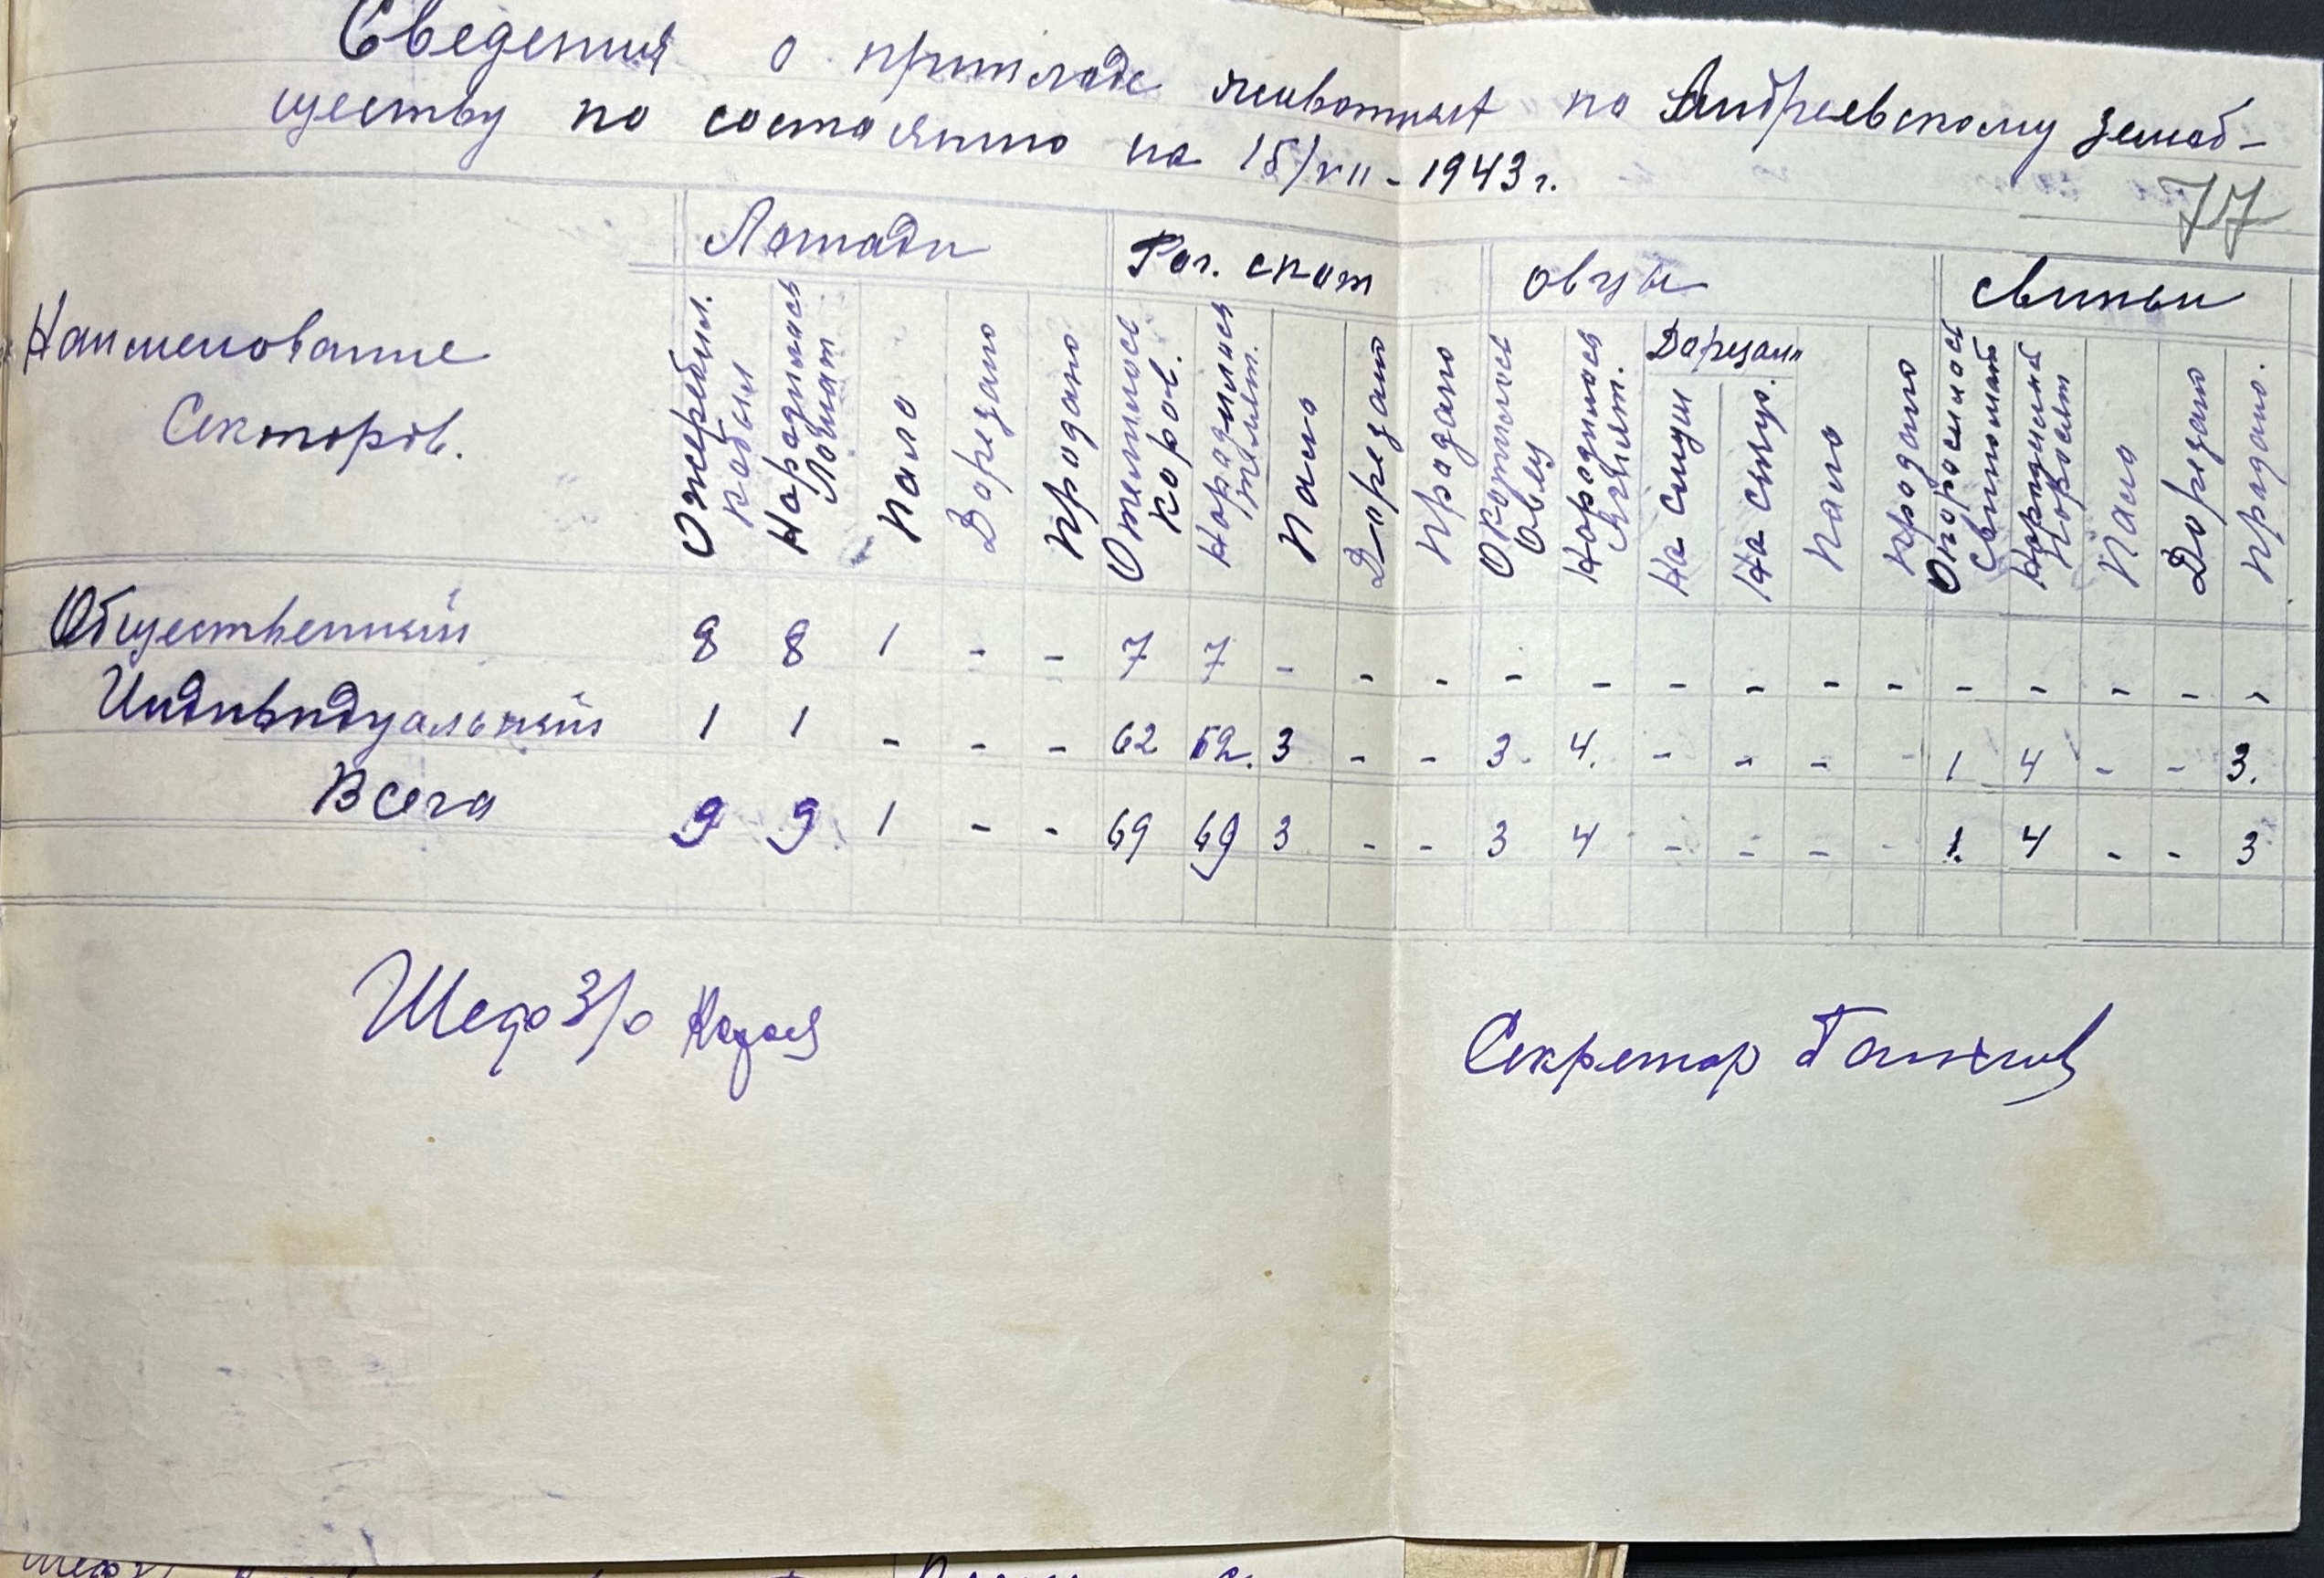 Сведения о приплоде животных по Андреевскому земоб-
ществу по состоянию на 15/VII - 1943 г.
77
Наименование Секторов.
Лошади
Рог. скот
овцы
свиньи
Ожеребил. кобыл
Народилось Лошат
Пало
Дорезано
Продано
Отелилось коров.
Народилось телят.
Пало
Дорезано
Продано
Окотилось Овец
Народилось Ягнят.
Дорезан
На
На
Пало
Продано
Опоросилось Свиномат
Народилось Поросят
Пало
Дорезано
Продано.
Общественный 8 8 1 - - 7 7 - - - - - - - - - - - - - -
Индивидуальный 1 1 - - - 62 62. 3 - - 3. 4. - - - - 1 4 - - 3.
Всего 9 9 1 - - 69 69 3 - - 3 4 - - - - 1. 4 - - 3
Шеф З/о
Секретар